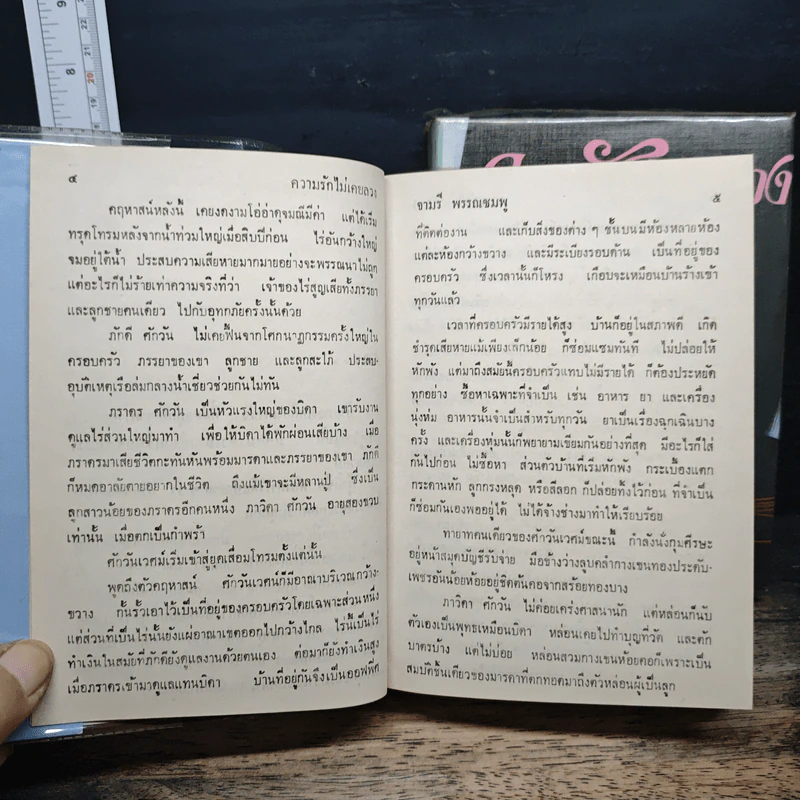 8
20
๔
ความรักไม่เคยลวง
คฤหาสน์หลังนี้ เคยงดงามโอ่อ่าดุจมณีมีค่า แต่ได้เริ่ม
ทรุดโทรมหลังจากน้ำท่วมใหญ่เมื่อสิบปีก่อน ไร่อันกว้างใหญ่
จมอยู่ใต้น้ำ ประสบความเสียหายมากมายอย่างจะพรรณนาไม่ถูก
แต่อะไรก็ไม่ร้ายเท่าความจริงที่ว่า เจ้าของไร่สูญเสียทั้งภรรยา
และลูกชายคนเดียว ไปกับอุทกภัยครั้งนั้นด้วย
ภักดี ศักวัน ไม่เคยฟื้นจากโศกนาฏกรรมครั้งใหญ่ใน
ครอบครัว ภรรยาของเขา ลูกชาย และลูกสะใภ้ ประสบ-
อุบัติเหตุเรือล่มกลางน้ำเชี่ยวช่วยกันไม่ทัน
ภราดร ศักวัน เป็นหัวแรงใหญ่ของบิดา เขารับงาน
ดูแลไร่ส่วนใหญ่มาทำ เพื่อให้บิดาได้พักผ่อนเสียบ้าง เมื่อ
ภราดรมาเสียชีวิตกะทันหันพร้อมมารดาและภรรยาของเขา ภักดี
ก็หมดอาลัยตายอยากในชีวิต ถึงแม้เขาจะมีหลานปู่ ซึ่งเป็น
ลูกสาวน้อยของภราดรอีกคนหนึ่ง ภาวิดา ศักวัน อายุสองขวบ
เท่านั้น เมื่อตกเป็นกำพร้า
ศักวันเวศม์เริ่มเข้าสู่ยุคเสื่อมโทรมตั้งแต่นั้น
พูดถึงตัวคฤหาสน์ ศักวันเวศน์ก็มีอาณาบริเวณกว้าง-
ขวาง กั้นรั้วเอาไว้เป็นที่อยู่ของครอบครัวโดยเฉพาะส่วนหนึ่ง
แต่ส่วนที่เป็นไร่นั้นยังแผ่อาณาเขตออกไปกว้างไกล ไร่นี้เป็นไร่
ทำเงินในสมัยที่ภักดียังดูแลงานด้วยตนเอง ต่อมาก็ยังทำเงินสูง
เมื่อภราดรเข้ามาดูแลแทนบิดา บ้านที่อยู่กันจึงเป็นออฟฟิศ
จามรี พรรณชมพู
๕
ที่ติดต่องาน และเก็บสิ่งของต่าง ๆ ชั้นบนมีห้องหลายห้อง
แต่ละห้องกว้างขวาง และมีระเบียงรอบด้าน เป็นที่อยู่ของ
ครอบครัว ซึ่งเวลานั้นก็โหรง เกือบจะเหมือนบ้านร้างเข้า
ทุกวันแล้ว
เวลาที่ครอบครัวมีรายได้สูง บ้านก็อยู่ในสภาพดี เกิด
ชำรุดเสียหายแม้เพียงเล็กน้อย ก็ซ่อมแซมทันที ไม่ปล่อยให้
หักพัง แต่มาถึงสมัยนี้ครอบครัวแทบไม่มีรายได้ ก็ต้องประหยัด
ทุกอย่าง ซื้อหาเฉพาะที่จำเป็น เช่น อาหาร ยา และเครื่อง
นุ่งห่ม อาหารนั้นจำเป็นสำหรับทุกวัน ยาเป็นเรื่องฉุกเฉินบาง
ครั้ง และเครื่องหุ่มนั้นก็พยายามเขียมกันอย่างที่สุด มีอะไรก็ใส่
กันไปก่อน ไม่ซื้อหา ส่วนตัวบ้านที่เริ่มหักพัง กระเบื้องแตก
กระดานหัก ลูกกรงหลุด หรือสีลอก ก็ปล่อยทิ้งไว้ก่อน ที่จำเป็น
ก็ซ่อมกันเองพออยู่ได้ ไม่ได้จ้างช่างมาทำให้เรียบร้อย
ทายาทคนเดียวของศักวันเวศม์ขณะนี้ กำลังนั่งกุมศีรษะ
อยู่หน้าสมุดบัญชีรับจ่าย มือข้างว่างลูบคลำกางเขนทองประดับ-
เพชรอันน้อยห้อยอยู่ชิดต้นคอจากสร้อยทองบาง
ภาวิดา ศักวัน ไม่ค่อยเคร่งศาสนานัก แต่หล่อนก็นับ
ตัวเองเป็นพุทธเหมือนบิดา หล่อนเคยไปทำบุญที่วัด และตัก
บาตรบ้าง แต่ไม่บ่อย หล่อนสวมกางเขนห้อยคอก็เพราะเป็น
สมบัติชิ้นเดียวของมารดาที่ตกทอดมาถึงตัวหล่อนผู้เป็นลูก